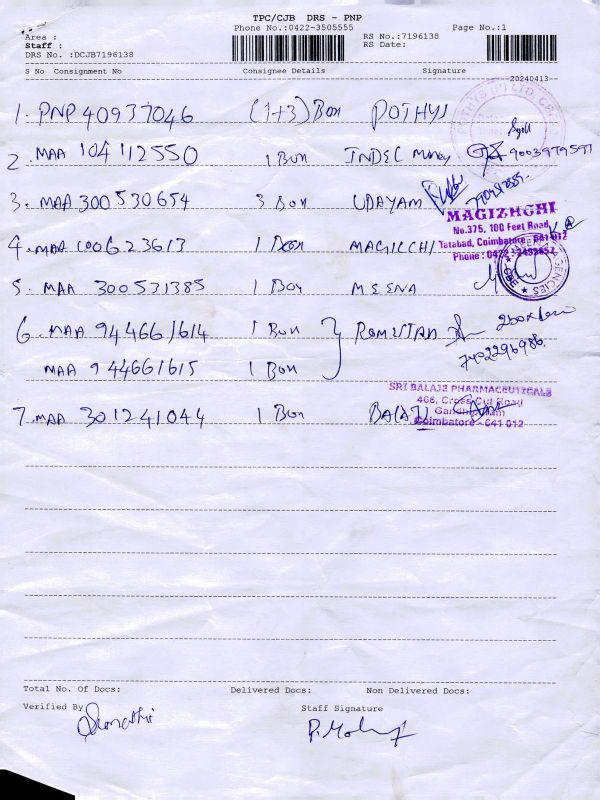 TPC/CJB DRS - PNP
Phone No.:0422-3505555
Page No.:1
Area :
Staff :
DRS No. :DCJB7196138
RS No.:7196138
RS Date:
S No Consignment No Consignee Details Signature
20240413
1. PNP 40937046 (1+3) Box POTHYS
2. MAA 104112550 1 Box INDEC Money 9003979597
3. MAA 300530654 3 Box UDAYAM
MAGIZHCHI
No.375, 100 Feet Road,
Tatabad, Coimbatore - 641 012
Phone : 0422
4. MAA 100623613 1 Box MAGICCHI
5. MAA 300531385 1 Box MEENA
6. MAA 944661614 1 Box
7402296986
MAA 944661615 1 Box
SRI BALAJI PHARMACEUTICALS
466, Cross Cut Road
Gandhipuram
Coimbatore - 641 012
7. MAA 301241044 1 Box BALAJI
Total No. Of Docs: Delivered Docs: Non Delivered Docs:
Verified By Staff Signature